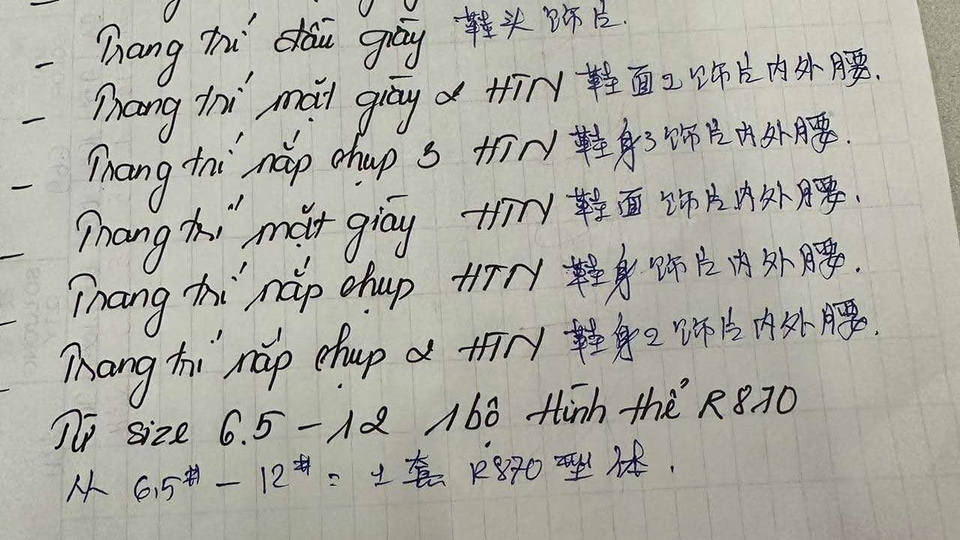 - Trang trí đầu giày 鞋头饰片.
- Trang trí mặt giày 2 HTN 鞋面2饰片内外腰.
- Trang trí nắp chụp 3 HTN 鞋身3饰片内外腰.
- Trang trí mặt giày HTN 鞋面饰片内外腰.
- Trang trí nắp chụp HTN 鞋身饰片内外腰.
- Trang trí nắp chụp 2 HTN 鞋身2饰片内外腰.
- Từ size 6.5 - 12 1 bộ Hình thể R870
从 6,5# - 12# = 1套 R870 型体.